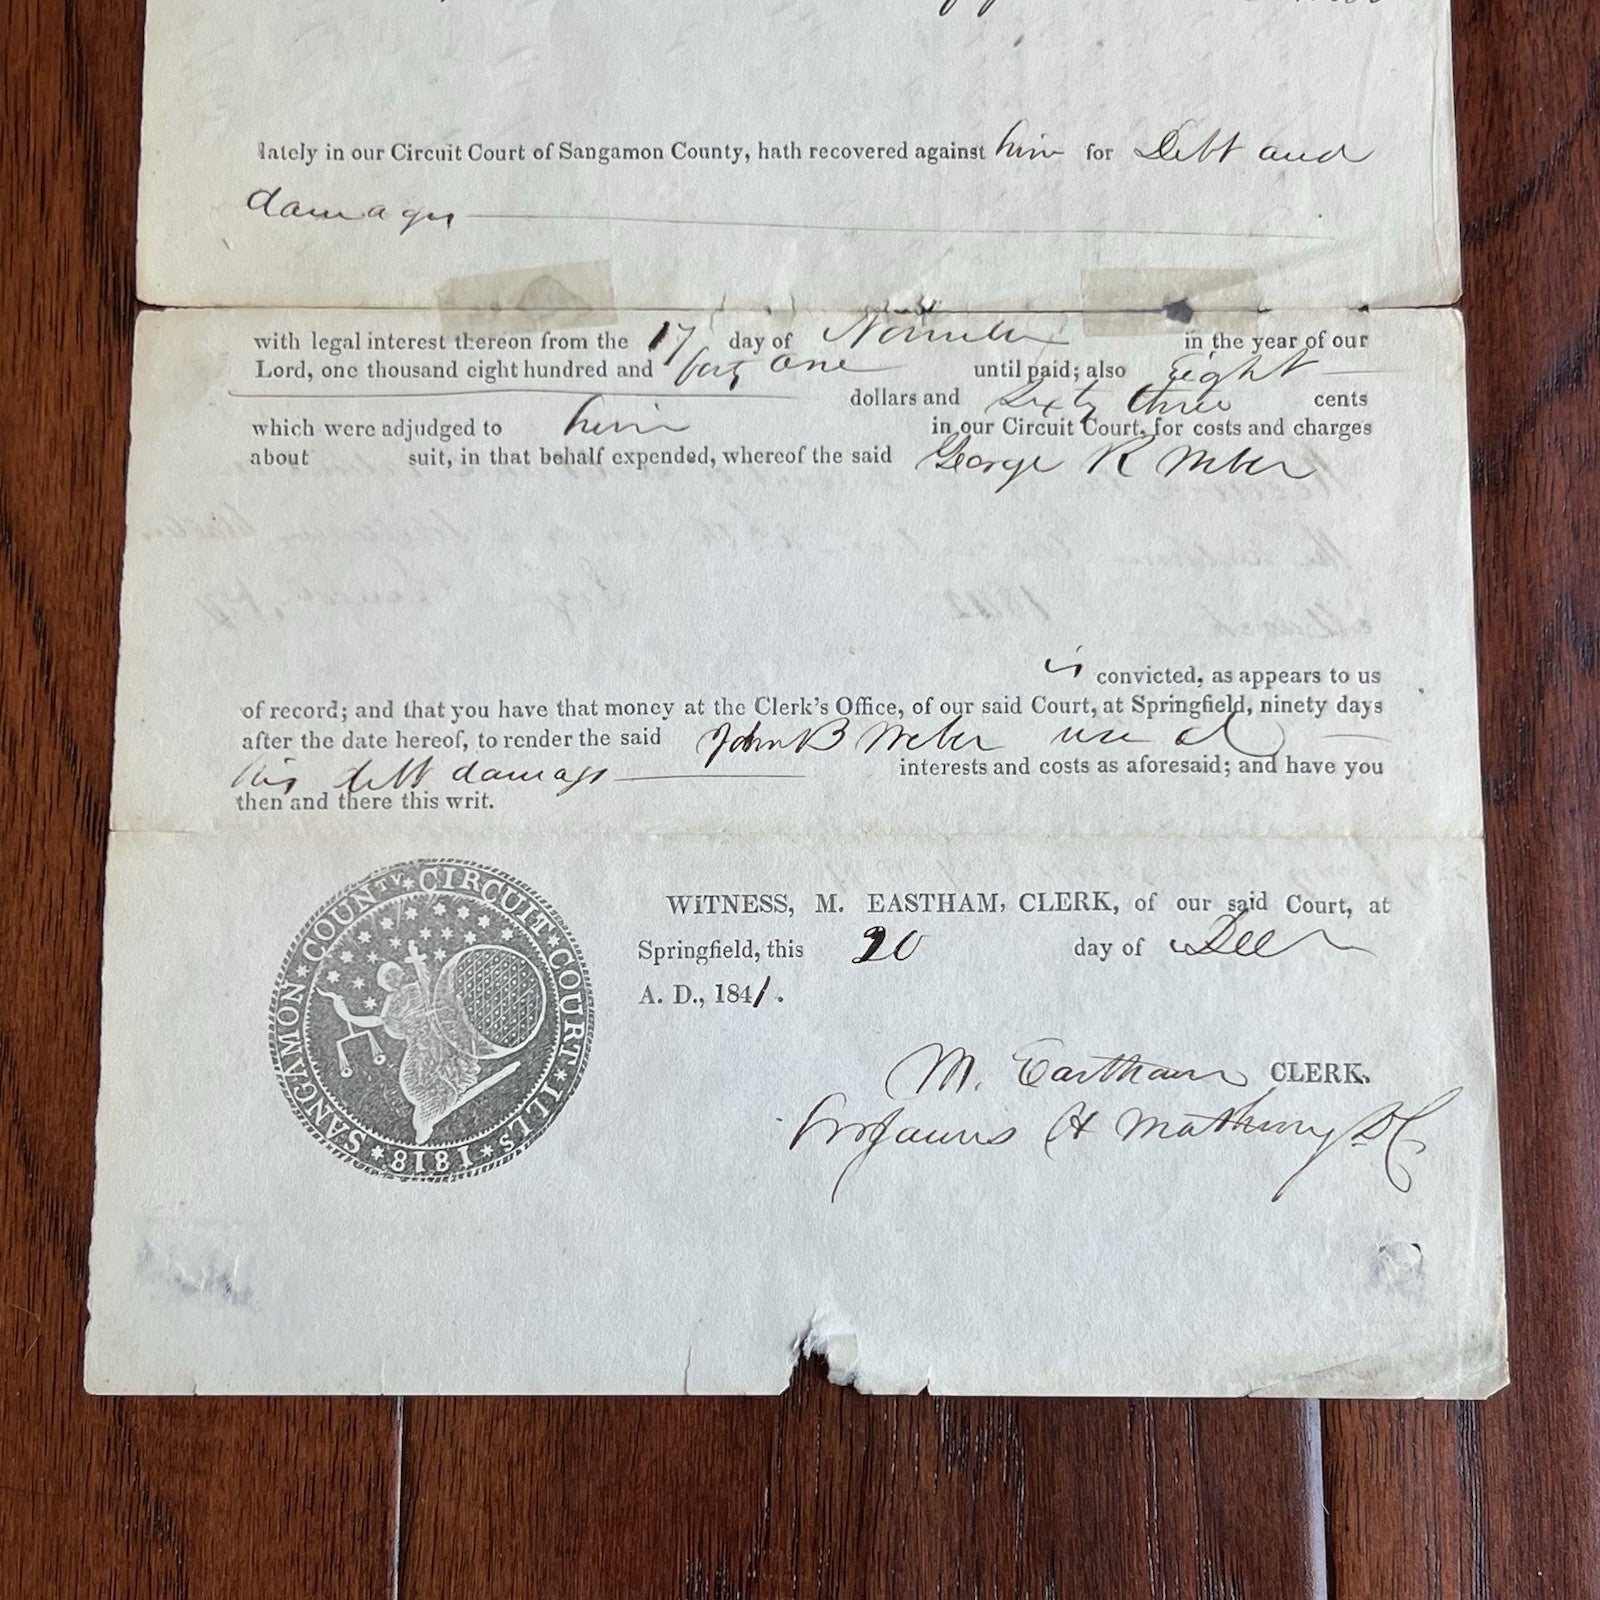 lately in our Circuit Court of Sangamon County, hath recovered against him for Debt and
damages
with legal interest thereon from the 17 day of November in the year of our
Lord, one thousand eight hundred and forty one until paid; also Eight
dollars and Sixty three cents
which were adjudged to him in our Circuit Court, for costs and charges
about suit, in that behalf expended, whereof the said George R Weber
is convicted, as appears to us
of record; and that you have that money at the Clerk's Office, of our said Court, at Springfield, ninety days
after the date hereof, to render the said John B Weber use
his debt damages interests and costs as aforesaid; and have you
then and there this writ.
SANGAMON COUNTY CIRCUIT COURT ILLS 1818
WITNESS, M. EASTHAM, CLERK, of our said Court, at
Springfield, this 20 day of Decr
A. D., 1841.
M. Eastham CLERK.
James H Matheny DC